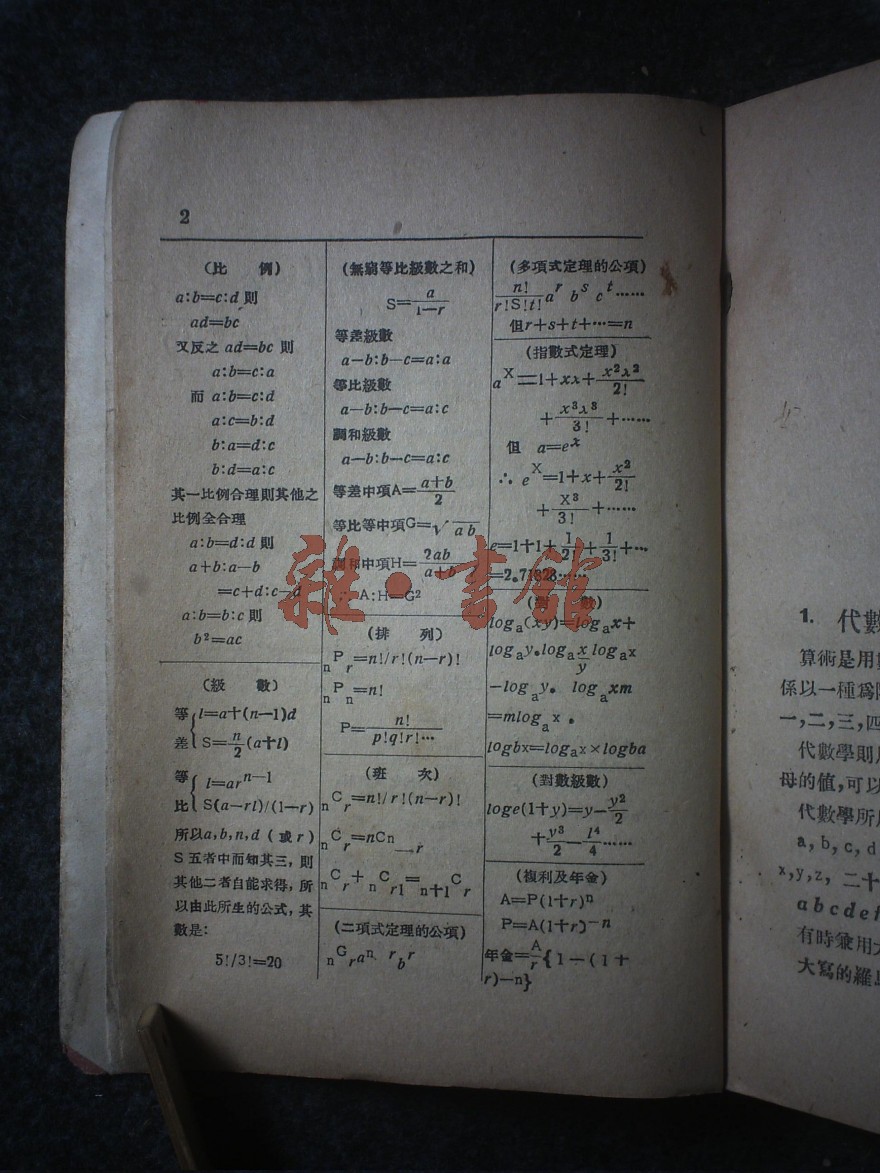 2
(比 例)
a:b=c:d 則
ad=bc
又反之 ad=bc 則
a:b=c:a
而 a:b=c:d
a:c=b:d
b:a=d:c
b:d=a:c
其一比例合理則其他之
比例全合理
a:b=d:d 則
a+b:a—b
=c+d:c—d
a:b=b:c 則
b²=ac
(級 數)
等差{l=a+(n—1)d
S=n/2(a+l)
等比{l=arⁿ⁻¹
S(a—rl)/(1—r)
所以a,b,n,d (或 r)
S 五者中而知其三，則
其他二者自能求得，所
以由此所生的公式，其
數是:
5!/3!=20
(無窮等比級數之和)
S=a/1—r
等差級數
a—b:b—c=a:a
等比級數
a—b:b—c=a:c
調和級數
a—b:b—c=a:c
等差中項A=a+b/2
等比等中項G=√ab
調和中項H=2ab/a+b
A:H=G²
(排 列)
nPr=n!/r!(n—r)!
nPn=n!
P=n!/p!q!r!…
(班 次)
nCr=n!/r!(n—r)!
nCr=nCn—r
nCr+nCr1=n+1Cr
(二項式定理的公項)
nGraⁿ、rbr
(多項式定理的公項)
n!/r!S!t! aʳ bˢ cᵗ……
但r+s+t+…=n
(指數式定理)
aˣ=1+xλ+x²λ²/2!
+x³λ³/3!+……
但 a=eˣ
∴ eˣ=1+x+x²/2!
+X³/3!+……
e=1+1+1/2!+1/3!+…
=2.71828……
(對 數)
loga(xy)=logax+
logay.loga x/y logax
—logay. logaxm
=mlogax.
logbx=logax×logba
(對數級數)
loge(1+y)=y—y²/2
+y³/2—l⁴/4……
(複利及年金)
A=P(1+r)ⁿ
P=A(1+r)⁻ⁿ
年金=A/r{1—(1+
r)—n}
雜·書館
1. 代數
算術是用
係以一種爲
一,二,三,四
代數學則
母的值,可以
代數學所
a, b, c, d
x,y,z, 二十
abcdef
有時兼用大
大寫的羅馬